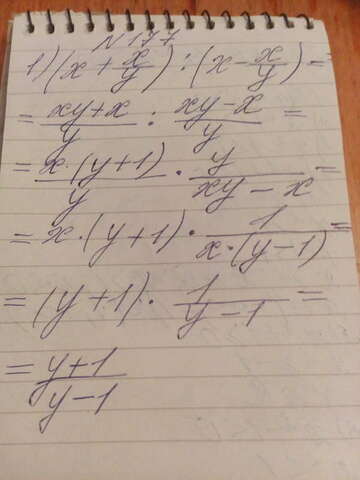 N 177
1) (x + x/y) : (x - x/y) =
= xy+x/y : xy-x/y =
= x·(y+1)/y · y/xy-x =
= x·(y+1) · 1/x·(y-1) =
= (y+1) · 1/y-1 =
= y+1/y-1